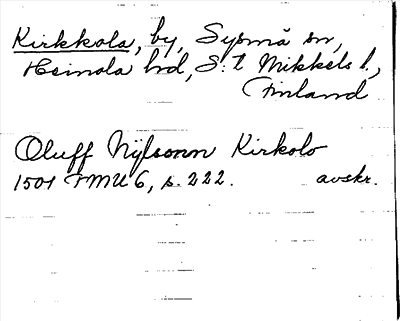 Kirkkola, by, Sysmä sn,
Heinola hd, S:t Mikkels l.,
Finland
Oluff Nÿlsonn Kirkolo
1501 FMU 6, s. 222. avskr.